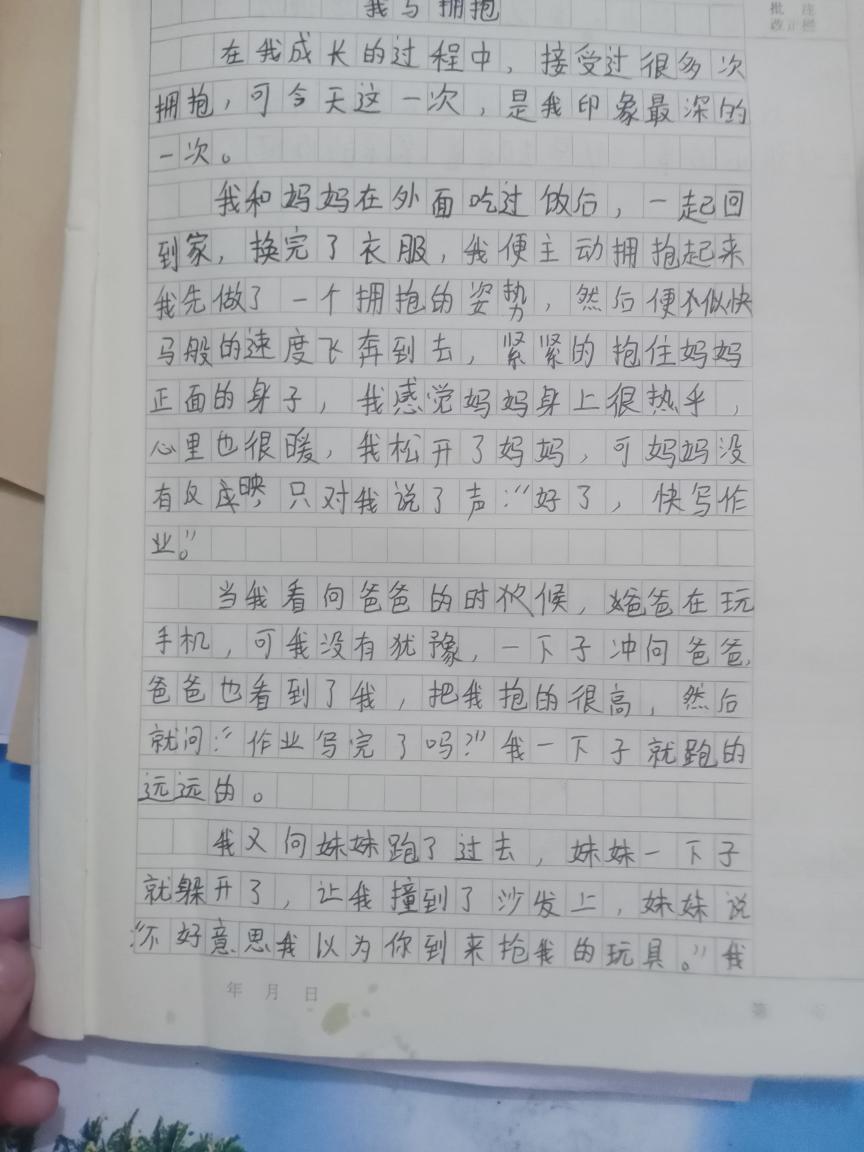 我与拥抱
批注
改正栏
在我成长的过程中，接受过很多次
拥抱，可今天这一次，是我印象最深的
一次。
我和妈妈在外面吃过饭后，一起回
到家，换完了衣服，我便主动拥抱起来
我先做了一个拥抱的姿势，然后便似快
马般的速度飞奔到去，紧紧的抱住妈妈
正面的身子，我感觉妈妈身上很热乎，
心里也很暖，我松开了妈妈，可妈妈没
有反应映，只对我说了声：“好了，快写作
业。”
当我看向爸爸的时候，爸爸在玩
手机，可我没有犹豫，一下子冲向爸爸，
爸爸也看到了我，把我抱的很高，然后
就问：“作业写完了吗？”我一下子就跑的
远远的。
我又向妹妹跑了过去，妹妹一下子
就躲开了，让我撞到了沙发上，妹妹说
：“不好意思我以为你到来抢我的玩具。”我
年 月 日
第 页